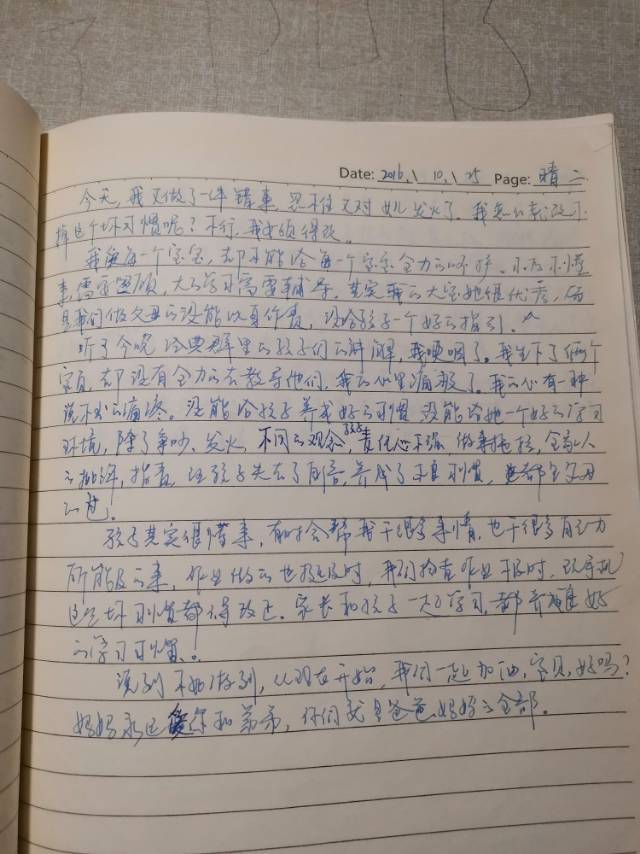 Date: 2016.\ 10.\ 25 Page: 晴 二
今天,我又做了一件错事,忍不住又对女儿发火了。我怎么素改不
掉这个坏习惯呢?不行,我必须得改。
我每一个宝宝,却不能给每一个宝宝全力的呵护。小不懂
事,需要照顾,大的学习需要辅导,其实我的大宝她很优秀,但
是我们做父母的没能以身作责,没给孩子一个好的指引。
听了今晚经典群里的孩子们的讲解,我哽咽了。我生下了俩个
宝贝,却没有全力的去教导他们,我的心里痛极了。我的心有一种
说不出的痛疼。没能给孩子养成好的习惯,没能给她一个好的学习
环境,除了争吵、发火,不同的观念,责任心不强,做事拖拉,全家人
的批评,指责,让孩子失去了自信,养成了不良习惯,这都是父母
的过!
孩子其实很懂事,有时会帮我干很多事情,也干很多自己力
所能及的事,作业做的也挺及时,我们检查作业不及时,玩手机
这些坏习惯都得改正。家长和孩子一起学习,都养成好
的学习习惯!
说到不如做到,从现在开始,我们一起加油,宝贝,好吗?
妈妈永远爱你和弟弟,你们就是爸爸、妈妈的全部。